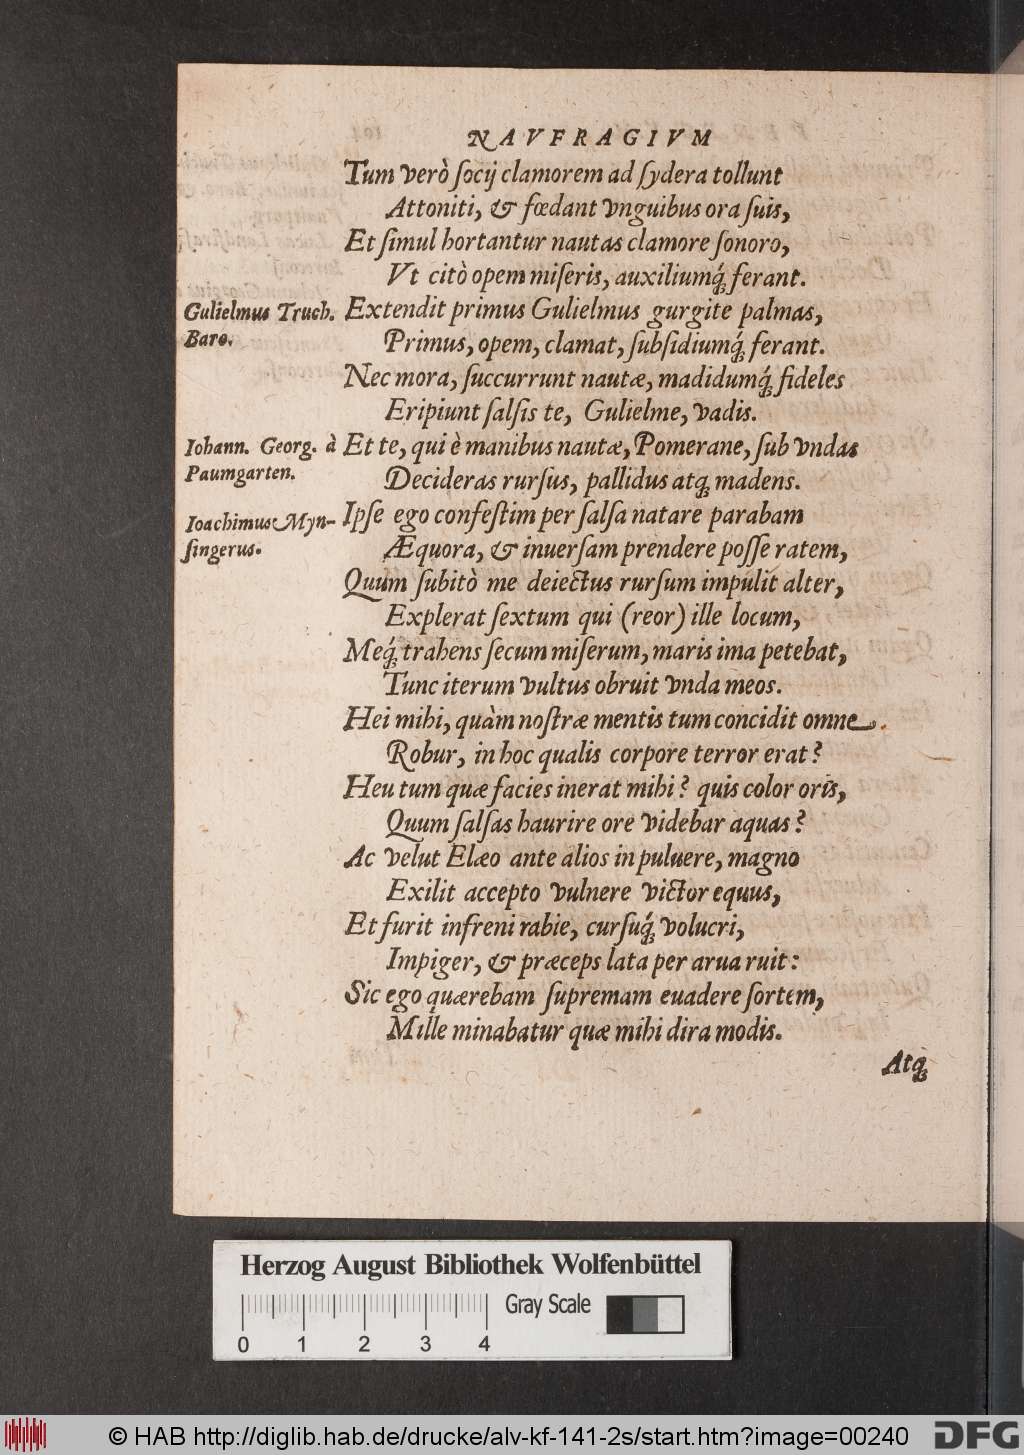 NAVFRAGIVM
Tum verò ſocij clamorem ad ſydera tollunt
Attoniti, & fœdant vnguibus ora ſuis,
Et ſimul hortantur nautas clamore ſonoro,
Vt citò opem miſeris, auxiliumq́; ferant.
Gulielmus Truch. Extendit primus Gulielmus gurgite palmas,
Baro. Primus, opem, clamat, ſubſidiumq́; ferant.
Nec mora, ſuccurrunt nautæ, madidumq́; fideles
Eripiunt ſalſis te, Gulielme, vadis.
Iohann. Georg. à Et te, qui è manibus nautæ, Pomerane, ſub vndas
Paumgarten. Decideras rurſus, pallidus atq; madens.
Ioachimus Myn- Ipſe ego confeſtim per ſalſa natare parabam
ſingerus. Æquora, & inuerſam prendere poſſe ratem,
Quum ſubitò me deiectus rurſum impulit alter,
Explerat ſextum qui (reor) ille locum,
Meq́; trahens ſecum miſerum, maris ima petebat,
Tunc iterum vultus obruit vnda meos.
Hei mihi, quàm noſtræ mentis tum concidit omne
Robur, in hoc qualis corpore terror erat?
Heu tum quæ facies inerat mihi? quis color oris,
Quum ſalſas haurire ore videbar aquas?
Ac velut Elæo ante alios in puluere, magno
Exilit accepto vulnere victor equus,
Et furit infreni rabie, curſuq́; volucri,
Impiger, & præceps lata per arua ruit:
Sic ego quærebam ſupremam euadere ſortem,
Mille minabatur quæ mihi dira modis.
Atq;
Herzog August Bibliothek Wolfenbüttel
Gray Scale
0 1 2 3 4
© HAB http://diglib.hab.de/drucke/alv-kf-141-2s/start.htm?image=00240
DFG